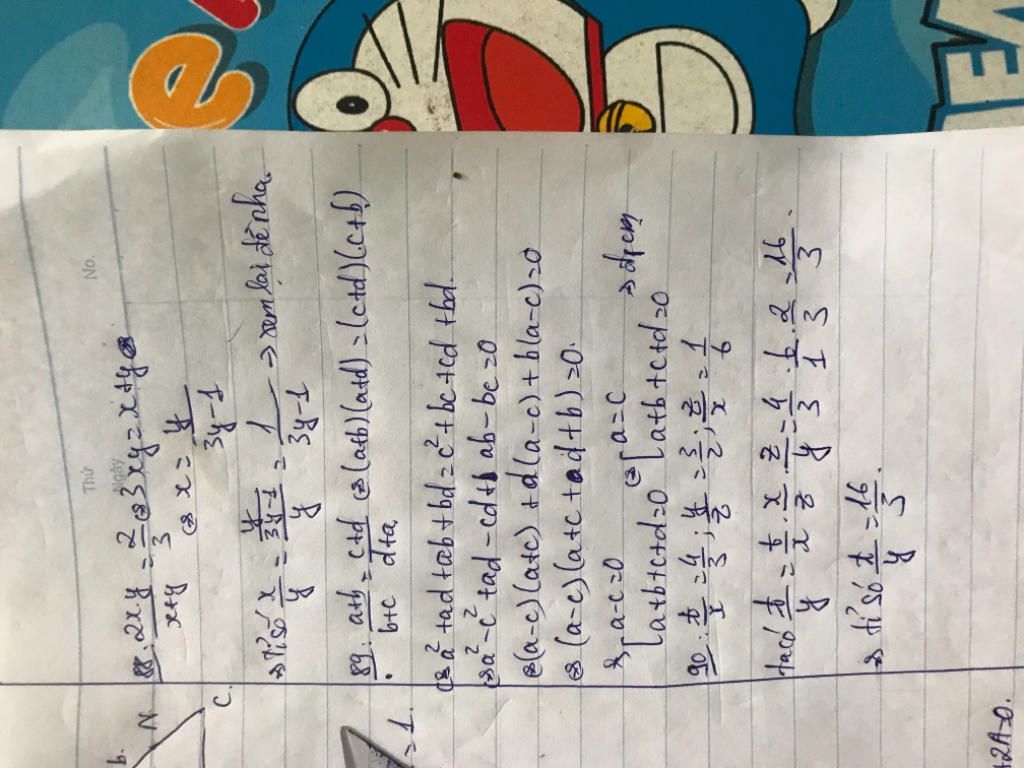 Thứ
Ngày
No.
88: 2xy/x+y = 2/3 ⇔ 3xy = x+y ⇔
⇔ x = y/3y-1
⇒ Tỉ số x/y = y/3y-1 / y = 1/3y-1 → xem lại đề nha.
89: a+b/b+c = c+d/d+a ⇔ (a+b)(a+d) = (c+d)(c+b)
⇔ a² + ad + ab + bd = c² + bc + cd + bd.
⇔ a² - c² + ad - cd + ab - bc = 0
⇔ (a-c)(a+c) + d(a-c) + b(a-c) = 0
⇔ (a-c)(a+c+d+b) = 0.
⇒ [a-c=0 ⇔ [a=c
[a+b+c+d=0 [a+b+c+d=0 ⇒ đpcm
90: t/x = 4/3; y/z = 3/2; z/x = 1/6
Ta có t/y = t/x . x/z . z/y = 4/3 . 6/1 . 2/3 = 16/3.
⇒ tỉ số t/y = 16/3.
b.
N
C.
= 1.
+2A=0.